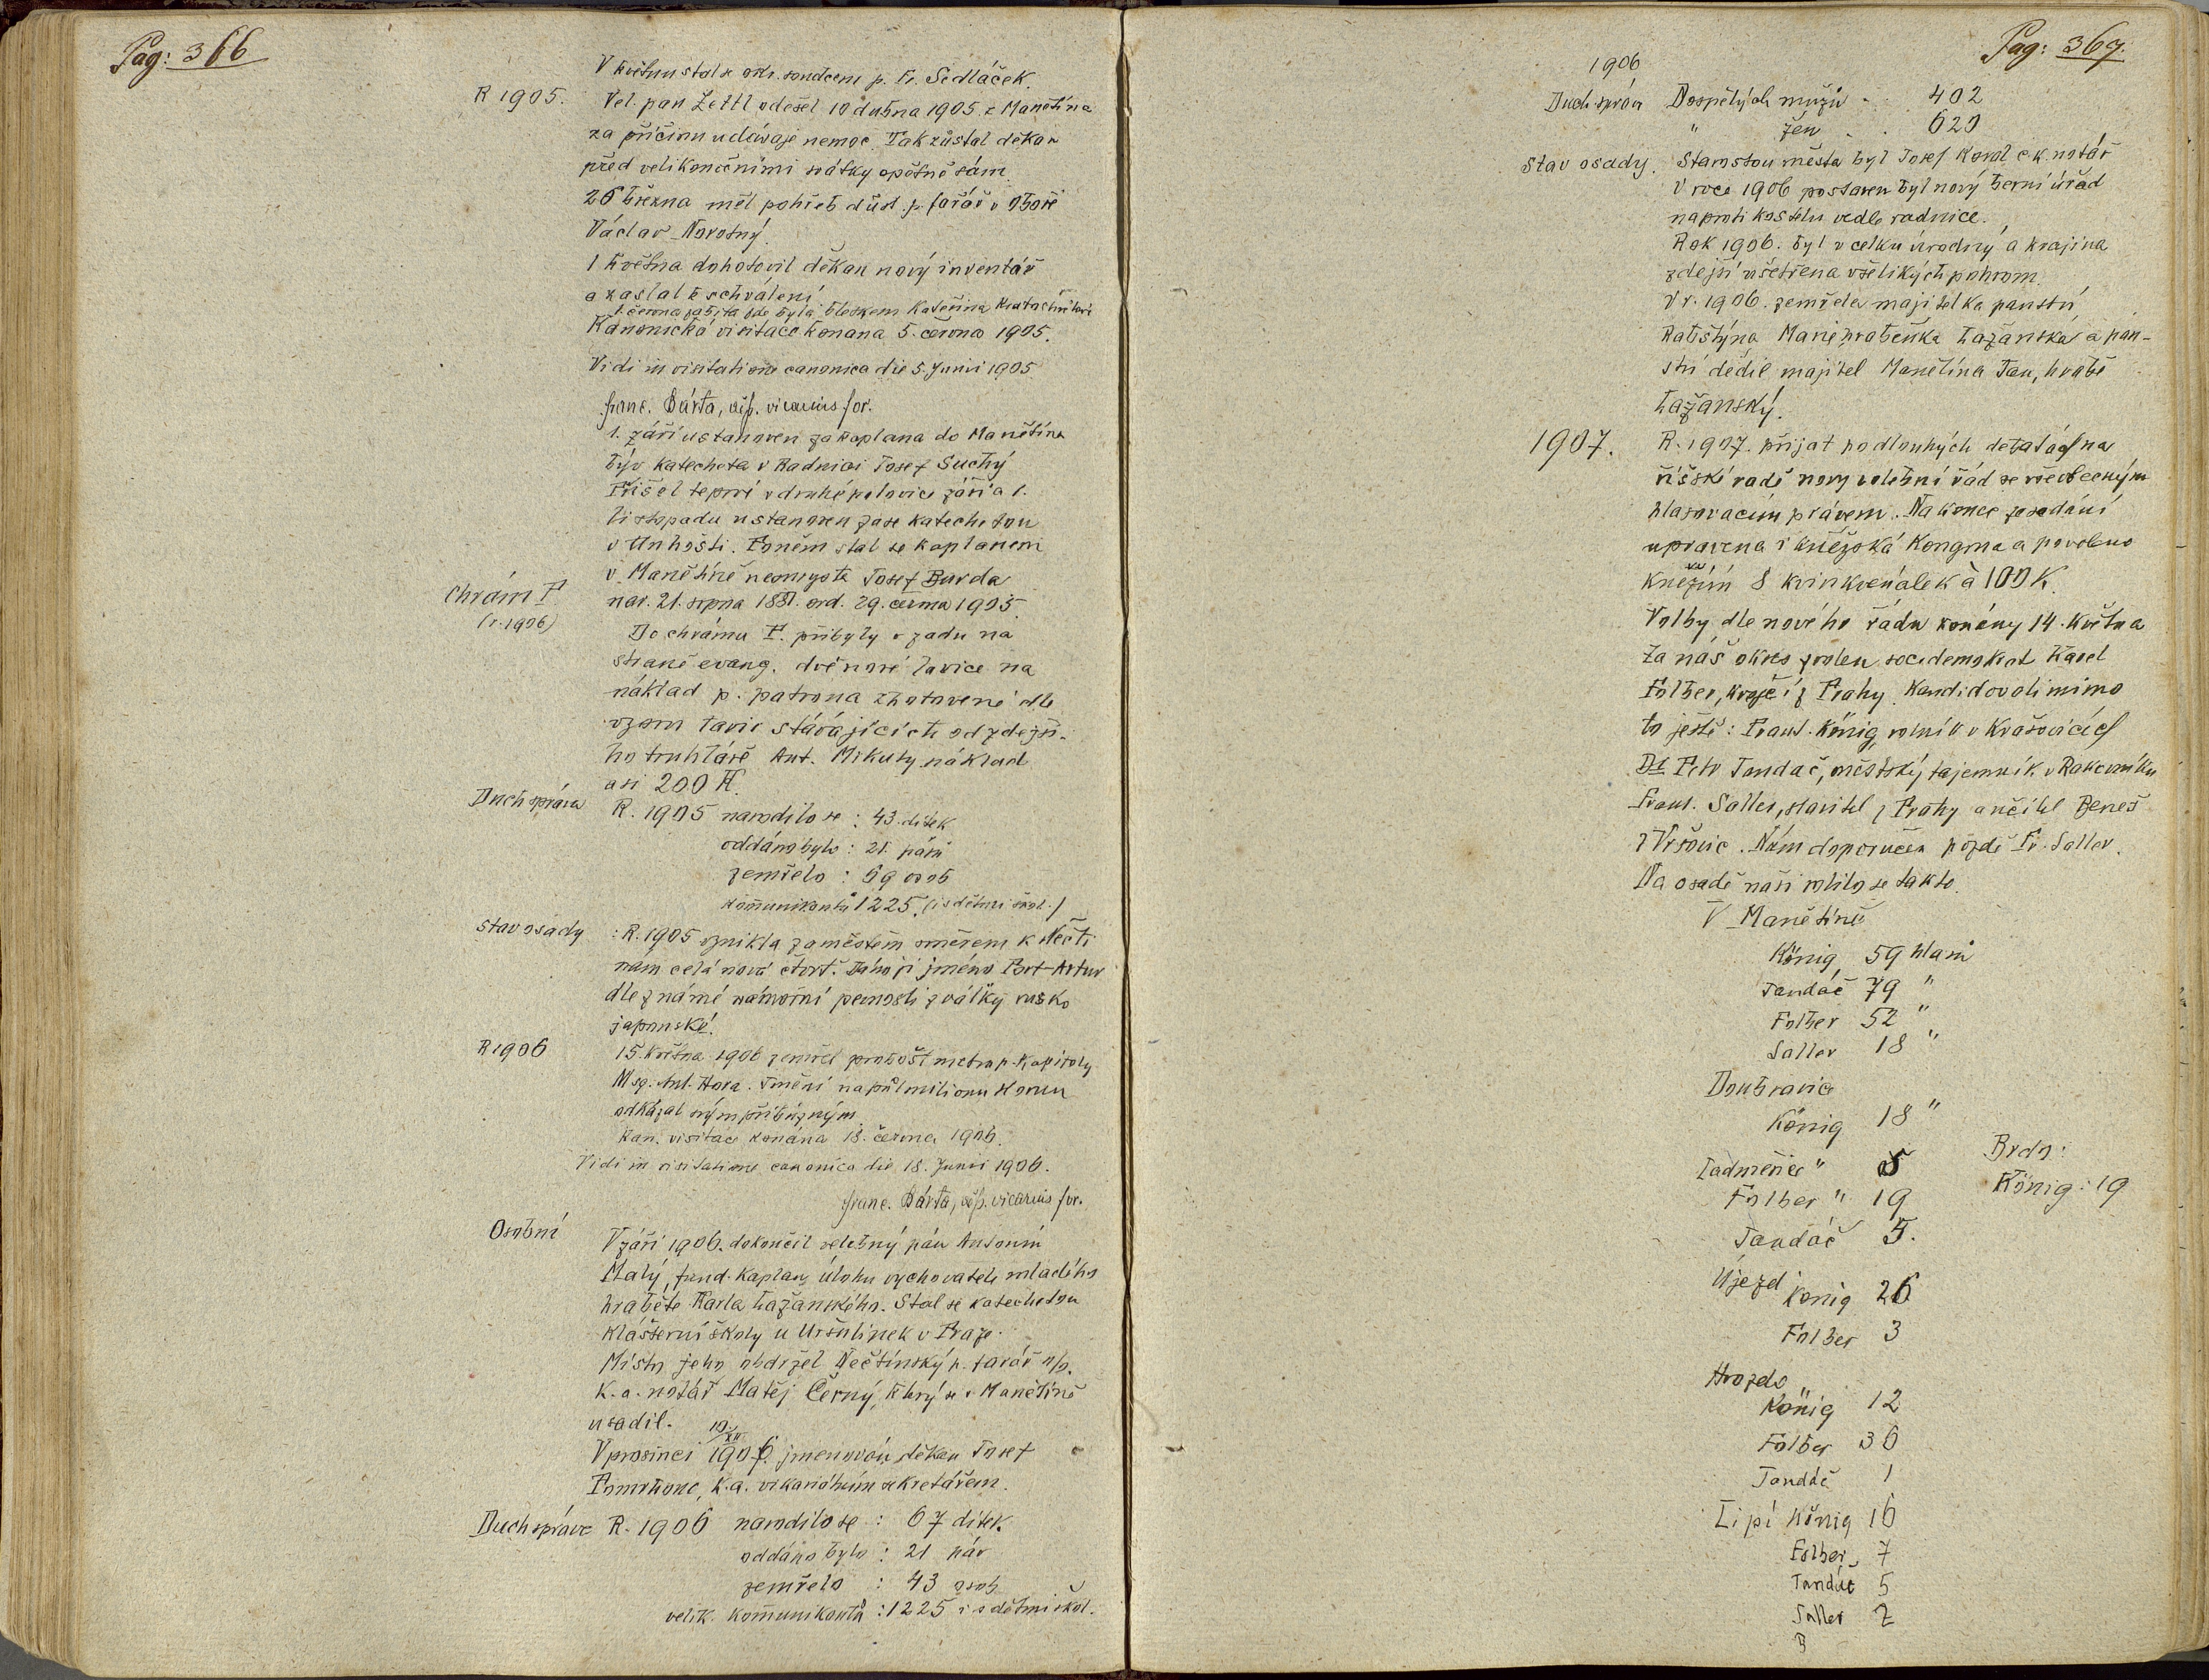 Pag: 366
V květnu stal se okr. soudcem p. Fr. Sedláček.
R 1905. Vel. pan Žettl odešel 10 dubna 1905 z Manětína
za příčinu udávaje nemoc. Tak zůstal děkan
před velikonočními svátky opětně sám.
26 března měl pohřeb důst. p. farář v Oboře
Václav Novotný.
1 května dohotovil děkan nový inventář
a zaslal k schválení
1. června zabita zde byla bleskem Kateřina
Kanonická visitace konana 5. června 1905.
Vidi in visitatione canonica die 5. Junii 1905
Franc. Bárta, bisk. vicarius for.
1. září ustanoven za kaplana do Manětína
býv katecheta v Radnici Josef Suchý
Přišel teprvé v druhé polovice září a 1.
listopadu ustanoven zase katechetou
v Unhošti. Po něm stal se kaplanem
v Manětíně neomysta Josef Burda
nar. 21. srpna 1881. ord. 29. června 1905
Chrám P.
(r. 1906)
Do chrámu P. přibyly v zadu na
straně evang. dvě nové lavice na
náklad p. patrona zhotovené dle
vzoru lavic stávajících od zdejší-
ho truhláře Ant. Mikuty náklad
asi 200 K.
Duch správa R. 1905 narodilo se : 43 dítek
oddáno bylo : 21 párů
zemřelo : 69 osob
komunikantů 1225. (i s dětmi škol.)
Stav osady : R. 1905 vznikla za městem směrem k Nečti
nam celá nová čtvrť. Dáno jí jméno Port-Artur
dle známé námořní pevnosti z války rusko
japonské.
R 1906 15. května 1906 zemřel probošt metrop. Kapitoly
Msg. Ant. Hora. Jmění na půl milionu Korun
odkázal svým příbuzným
Kan. visitace konána 18. června 1906.
Vidi in visitatione canonica die 18. Junii 1906.
Franc. Bárta, bisk. vicarius for.
Osobní V září 1906. dokončil velebný pán Antonín
Malý, fund. Kaplan, úlohu vychovatele mladého
hraběte Karla Lažanského. Stal se katechetou
klášterní školy u Uršulinek v Praze.
Místo jeho obdržel Nečtinský p. farář o/p.
K. a. notář Matěj Černý, který se v Manětíně
usadil.
19/XII
V prosinci 1906. jmenován děkan Josef
Pomrhonc, K. a. vikariátním sekretářem.
Duch správa R. 1906 narodilo se : 67 dítek.
oddáno bylo : 21 pár
zemřelo : 43 osob
velik. komunikantů : 1225 i s dětmi škol.
Pag: 367.
1906
Duch správa Dospělých mužů . . 402
" žen . . 620
Stav osady. Starostou města byl Josef Koral c k notář
V roce 1906 postaven byl nový berní úřad
naproti kostelu vedle radnice.
Rok 1906. byl v celku úrodný a krajina
zdejší ušetřena všelikých pohrom.
V r. 1906. zemřela majitelka panství
Rabštýna Marie hraběnka Lažanská a pán-
ství dědil majitel Manětína Jan, hrabě
Lažanský.
1907. R. 1907. přijat po dlouhých debatách na
říšské radě nový volební řád se všeobecným
hlasovacím právem. Na konce zasedání
upravena i kněžská Kongrua a povoleno
kněžím 8 kvinkvenálek à 100 K.
Volby dle nového řádu konány 14. Května
Za náš okres zvolen soc. demokrat Karel
Folber, krejčí z Prahy. Kandidovali mimo
to ještě : Frant. König, rolník v Krašovicích
Dr Petr Tandač, městský tajemník v Rakovníku
Frant. Saller, stavitel z Prahy a učitel Beneš
z Vršovic. Nám doporučen pozdě Fr. Saller.
Na osadě naší volilo se takto.
V Manětíně
König 59 hlasů
Tandáč 79 "
Folber 52 "
Saller 18 "
Doubravice
König 18 "
Ladměřice " 5
Folber " 19
Tandáč 5.
Brdo :
König : 19
Újezd König 26
Folber 3
Hrozdo
König 12
Folber 36
Tandáč 1
Lipí König 16
Folber 7
Tandáč 5
Saller 2
B